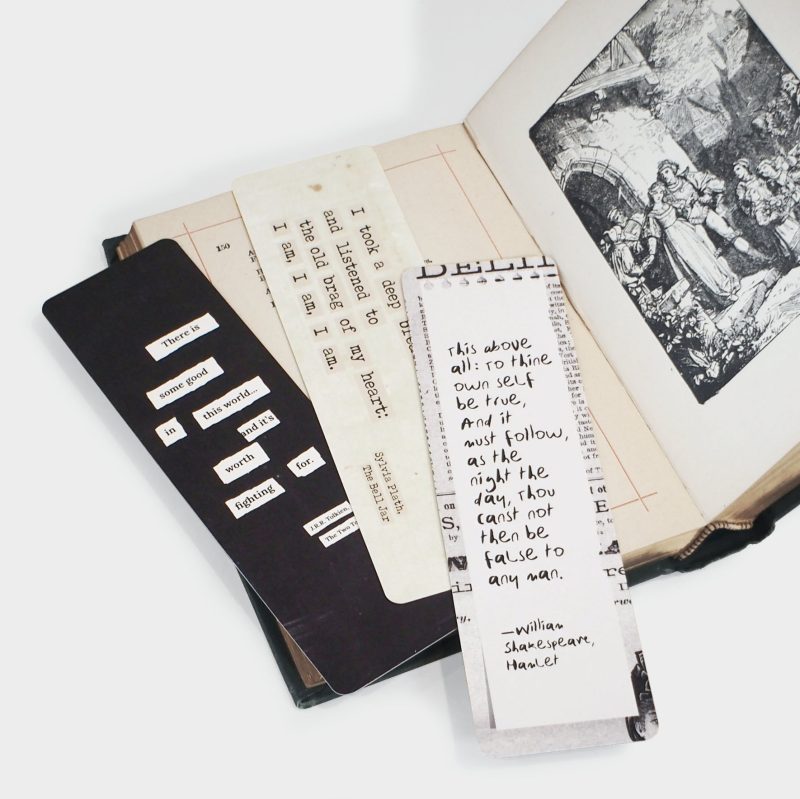 There is
some good
in this world...
and it's
worth
fighting for.
J.R.R. Tolkien,
The Two
I took a deep
and listened to
the old brag of my heart:
I am, I am, I am.
Sylvia Plath,
The Bell Jar
This above
all: to thine
own self
be true,
And it
must follow,
as the
night the
day, thou
canst not
then be
false to
any man.
—William
Shakespeare,
Hamlet
150